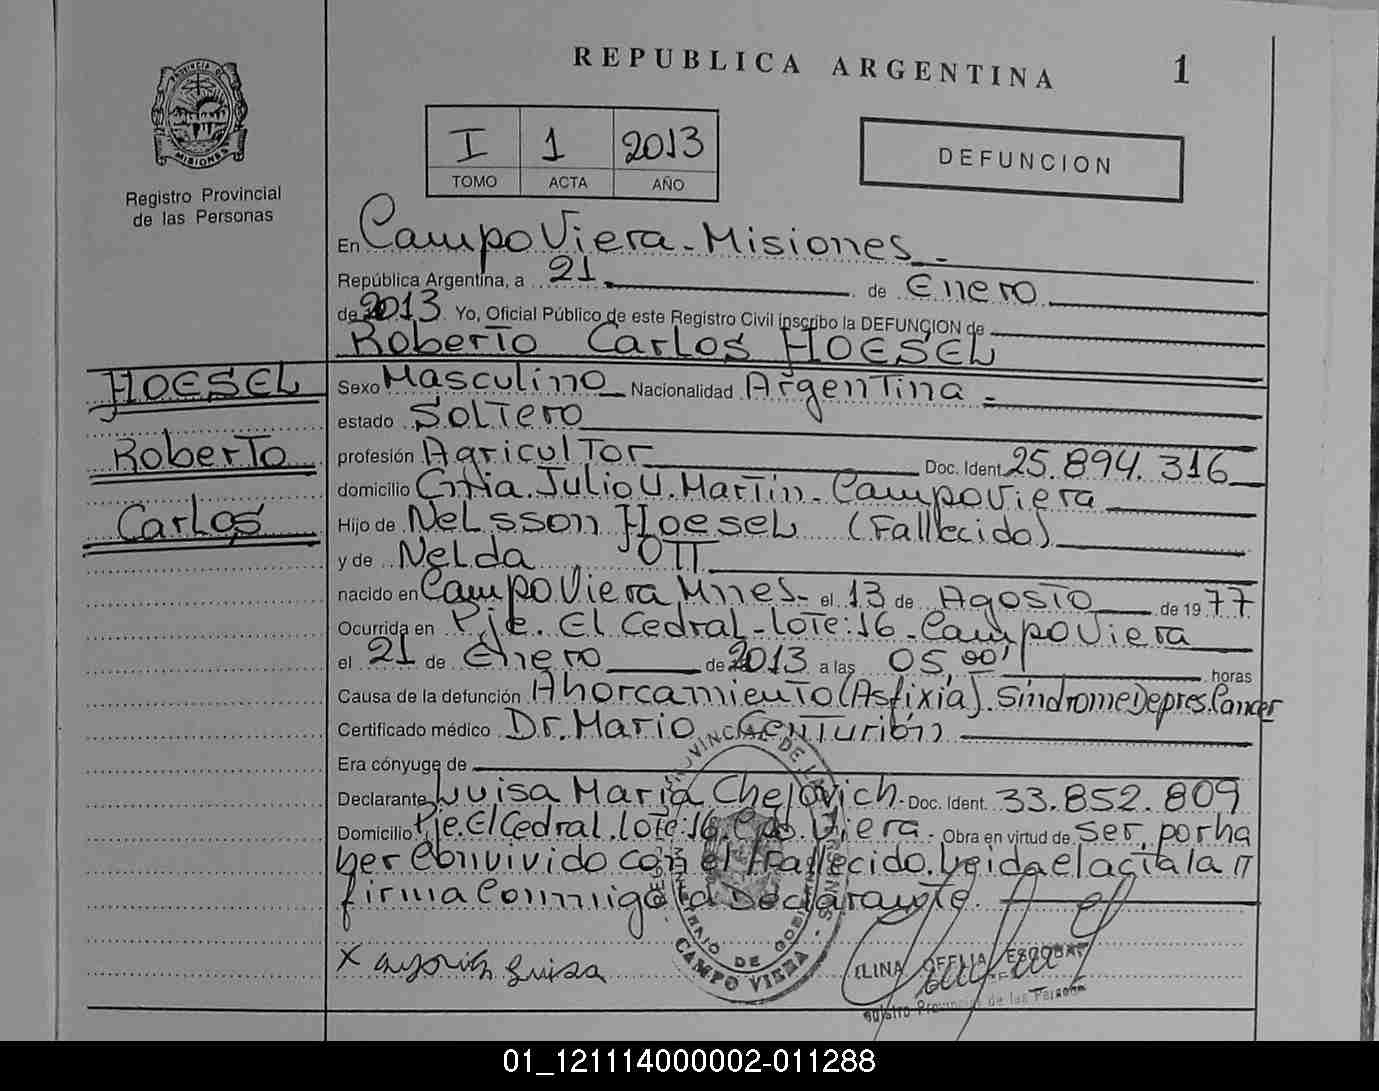 REPUBLICA ARGENTINA
1
PROVINCIA DE
MISIONES
Registro Provincial
de las Personas
I 1 2013
TOMO ACTA AÑO
DEFUNCION
En Campo Viera - Misiones -
República Argentina, a 21 de Enero
de 2013 Yo, Oficial Público de este Registro Civil inscribo la DEFUNCION de
Roberto Carlos HOESEL
HOESEL
Roberto
Carlos
Sexo Masculino Nacionalidad Argentina -
estado Soltero
profesión Agricultor Doc. Ident. 25.894.316
domicilio Julio U. Martin - Campo Viera
Hijo de Nelsson Hoesel (Fallecido)
y de Nelda OTT
nacido en Campo Viera Mnes - el 13 de Agosto de 1977
Ocurrida en Pje. El Cedral - lote: 16 - Campo Viera
el 21 de Enero de 2013 a las 05,00 horas
Causa de la defunción Ahorcamiento (Asfixia). Sindrome Depres. Cancer
Certificado médico Dr. Mario Centurión
Era cónyuge de
Declarante Luisa Maria Chejovich - Doc. Ident. 33.852.809
Domicilio Pje. El Cedral. lote: 16. Cpo. Viera - Obra en virtud de ser, por ha
ber convivido con el Fallecido. Leida el acta la
firma conmigo la Declarante.
X Luisa
CAMPO VIERA
OFELIA ESCOBAR
Registro Provincial de las Personas
01_121114000002-011288